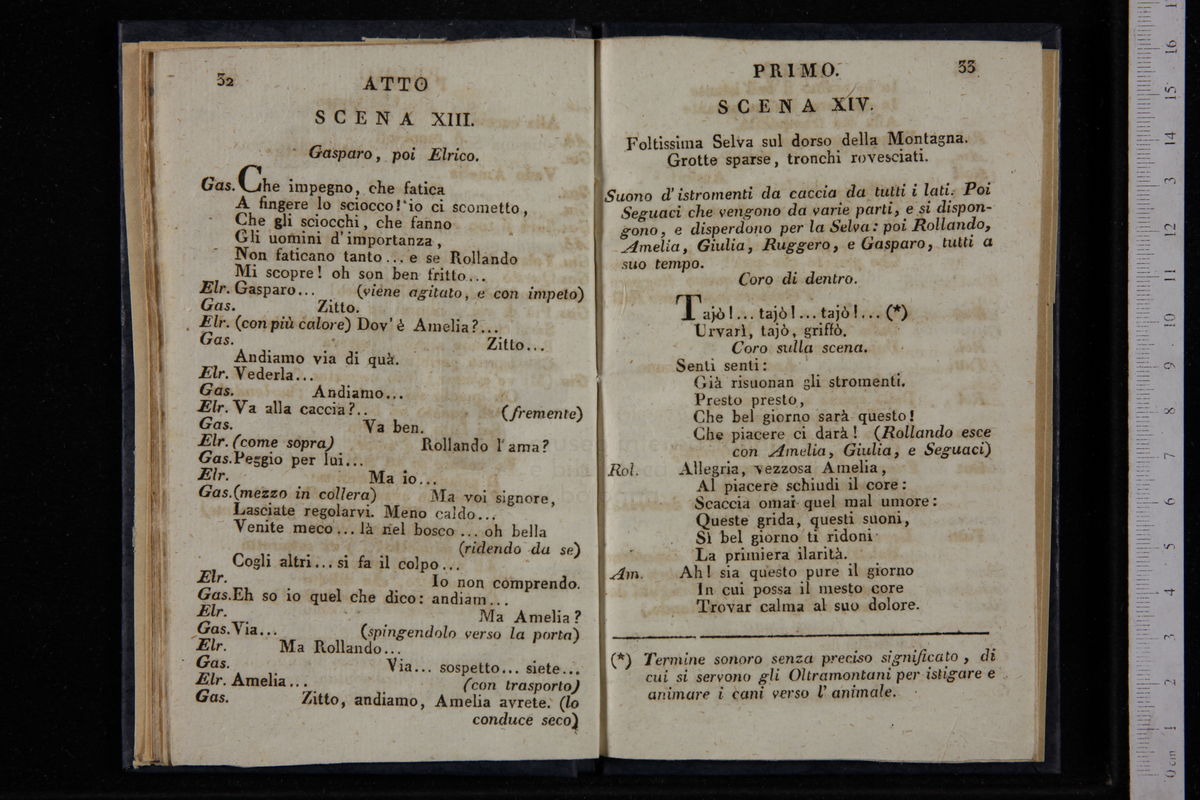 32
ATTO
SCENA XIII.
Gasparo, poi Elrico.
Gas. Che impegno, che fatica
A fingere lo sciocco! io ci scometto,
Che gli sciocchi, che fanno
Gli uomini d'importanza,
Non faticano tanto... e se Rollando
Mi scopre! oh son ben fritto...
Elr. Gasparo... (viene agitato, e con impeto)
Gas. Zitto.
Elr. (con più calore) Dov'è Amelia?...
Gas. Zitto...
Andiamo via di quà.
Elr. Vederla...
Gas. Andiamo...
Elr. Va alla caccia?.. (fremente)
Gas. Va ben.
Elr. (come sopra) Rollando l'ama?
Gas. Peggio per lui...
Elr. Ma io...
Gas. (mezzo in collera) Ma voi signore,
Lasciate regolarvi. Meno caldo...
Venite meco... là nel bosco... oh bella
(ridendo da se)
Cogli altri... si fa il colpo...
Elr. Io non comprendo.
Gas. Eh so io quel che dico: andiam...
Elr. Ma Amelia?
Gas. Via... (spingendolo verso la porta)
Elr. Ma Rollando...
Gas. Via... sospetto... siete...
Elr. Amelia... (con trasporto)
Gas. Zitto, andiamo, Amelia avrete. (lo
conduce seco)
PRIMO. 33
SCENA XIV.
Foltissima Selva sul dorso della Montagna.
Grotte sparse, tronchi rovesciati.
Suono d'istromenti da caccia da tutti i lati. Poi
Seguaci che vengono da varie parti, e si dispon-
gono, e disperdono per la Selva: poi Rollando,
Amelia, Giulia, Ruggero, e Gasparo, tutti a
suo tempo.
Coro di dentro.
Tajò!... tajò!... tajò!... (*)
Urvarì, tajò, griffò.
Coro sulla scena.
Senti senti:
Già risuonan gli stromenti.
Presto presto,
Che bel giorno sarà questo!
Che piacere ci darà! (Rollando esce
con Amelia, Giulia, e Seguaci)
Rol. Allegria, vezzosa Amelia,
Al piacere schiudi il core:
Scaccia omai quel mal umore:
Queste grida, questi suoni,
Sì bel giorno ti ridoni
La primiera ilarità.
Am. Ah! sia questo pure il giorno
In cui possa il mesto core
Trovar calma al suo dolore.
(*) Termine sonoro senza preciso significato, di
cui si servono gli Oltramontani per istigare e
animare i cani verso l'animale.